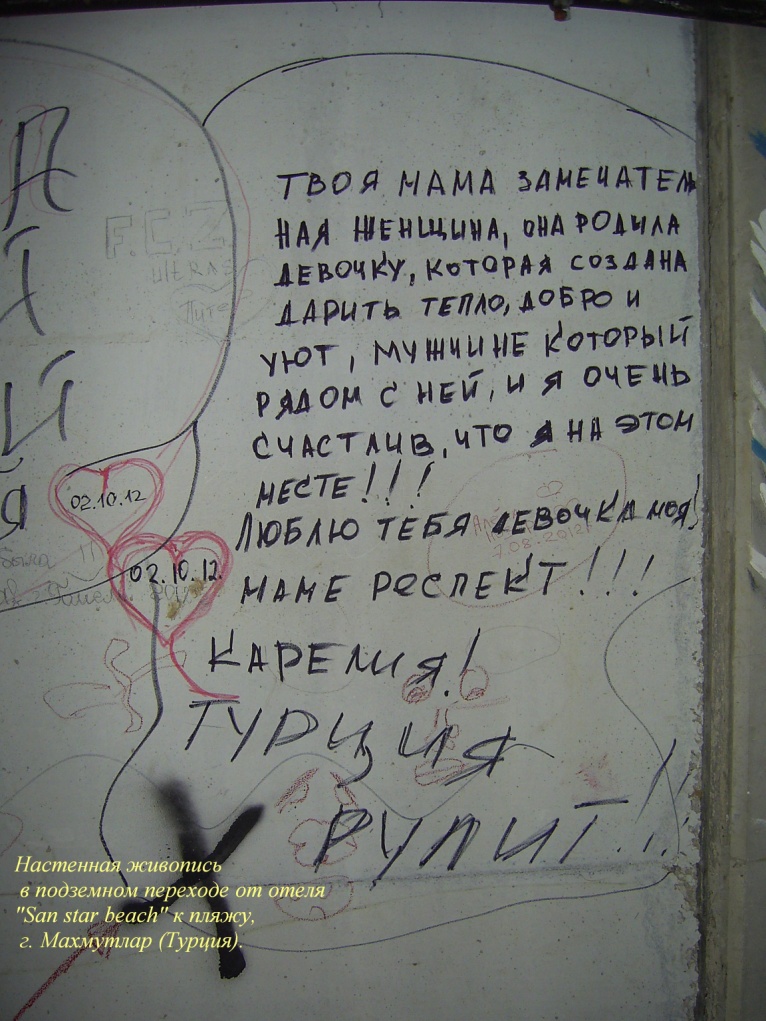 ТВОЯ МАМА ЗАМЕЧАТЕЛЬ
НАЯ ЖЕНЩИНА, ОНА РОДИЛА
ДЕВОЧКУ, КОТОРАЯ СОЗДАНА
ДАРИТЬ ТЕПЛО, ДОБРО И
УЮТ, МУЖЧИНЕ КОТОРЫЙ
РЯДОМ С НЕЙ, И Я ОЧЕНЬ
СЧАСТЛИВ, ЧТО Я НА ЭТОМ
МЕСТЕ!!!
ЛЮБЛЮ ТЕБЯ ДЕВОЧКА МОЯ!
МАМЕ РЕСПЕКТ!!!
КАРЕЛИЯ!
ТУРЦИЯ
РУЛИТ!!!
F.C.Z
02.10.12
02.10.12.
Настенная живопись
в подземном переходе от отеля
"San star beach" к пляжу,
г. Махмутлар (Турция).